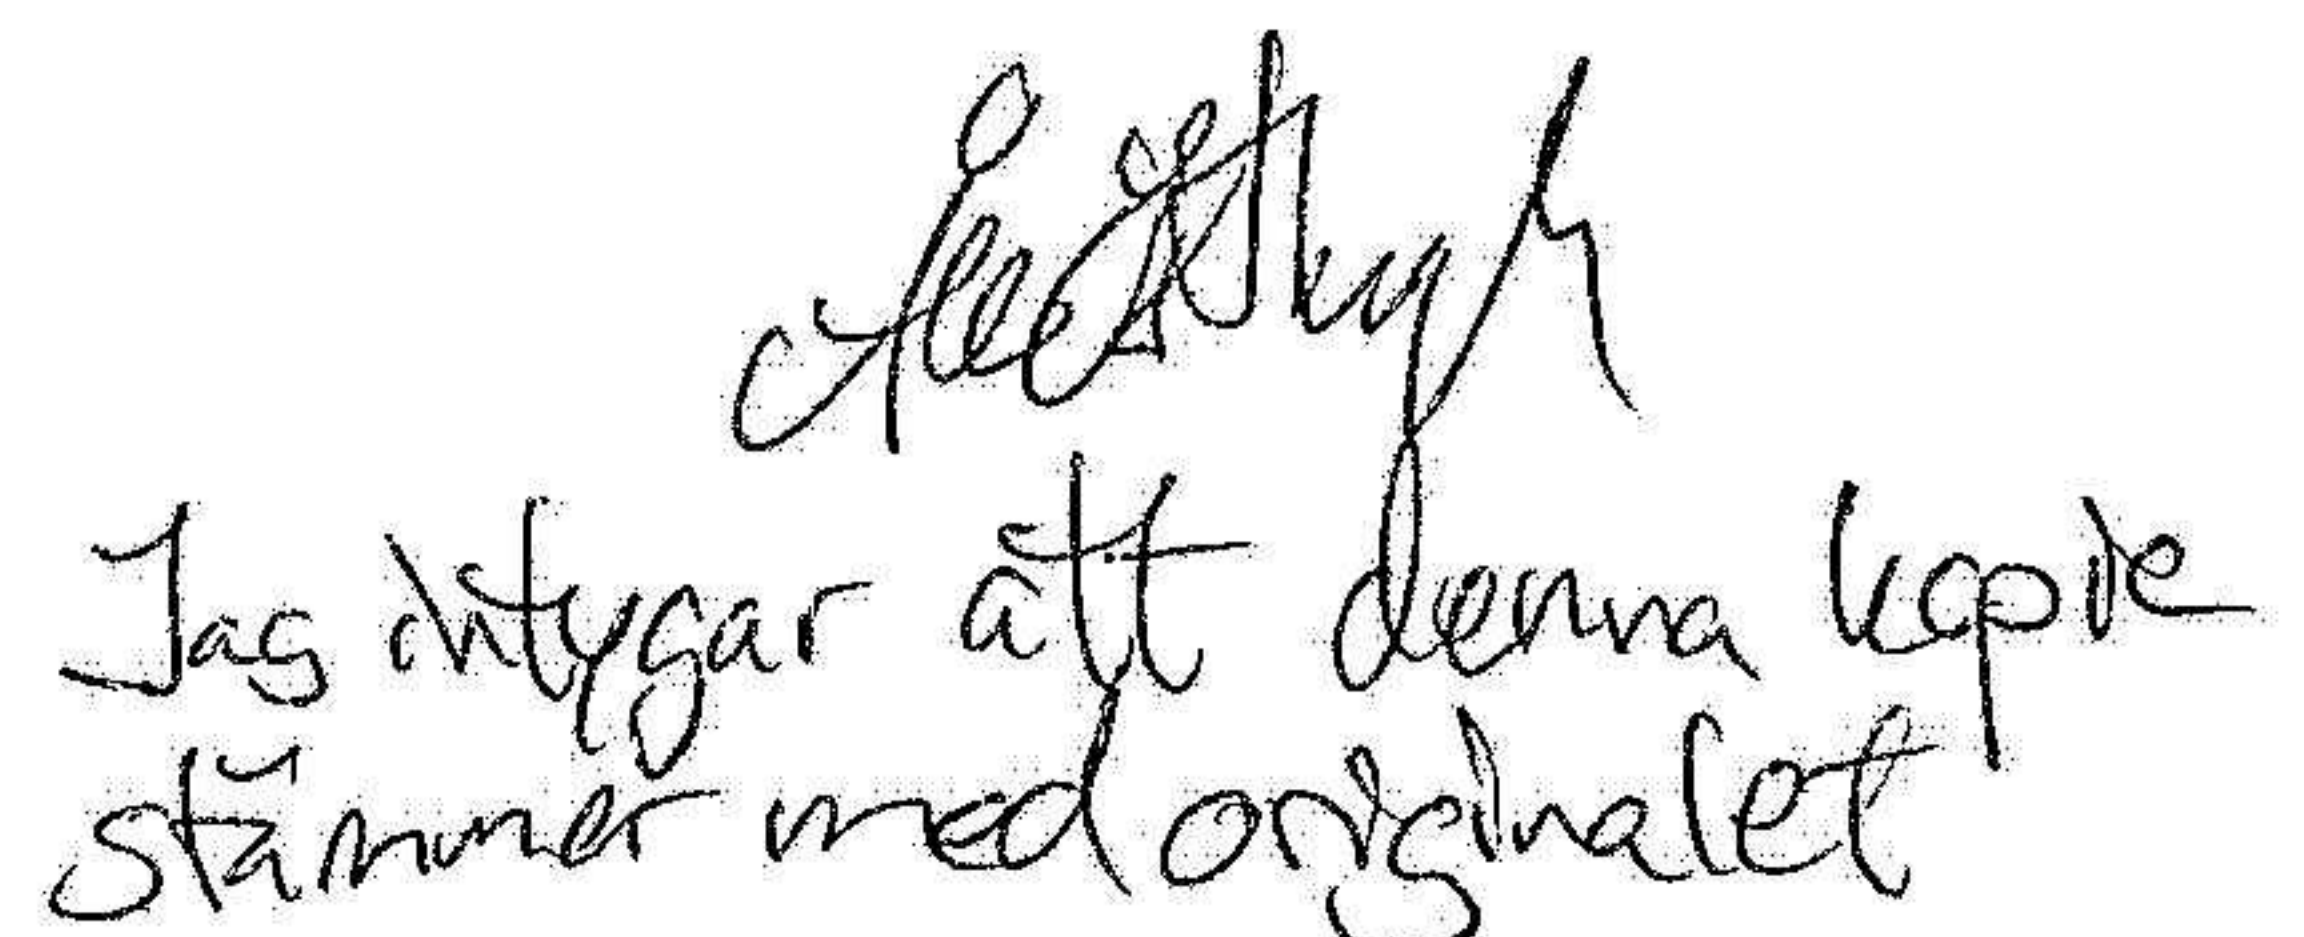 Jag intygar att denna kopie
stämmer med originalet